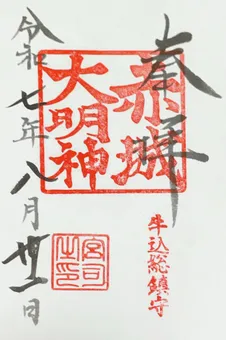 奉拝
赤城
大明神
牛込総鎮守
宮司之印
令和七年八月卅一日